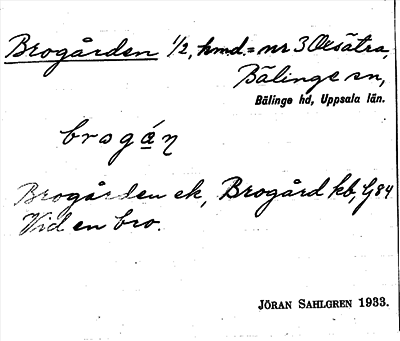 Brogården 1/2, hmd. = nr 3 Oxsätra,
Bälinge sn,
Bälinge hd, Uppsala län.
brogá̱ṇ
Brogården ek, Brogård kb, G84
Vid en bro.
JÖRAN SAHLGREN 1933.